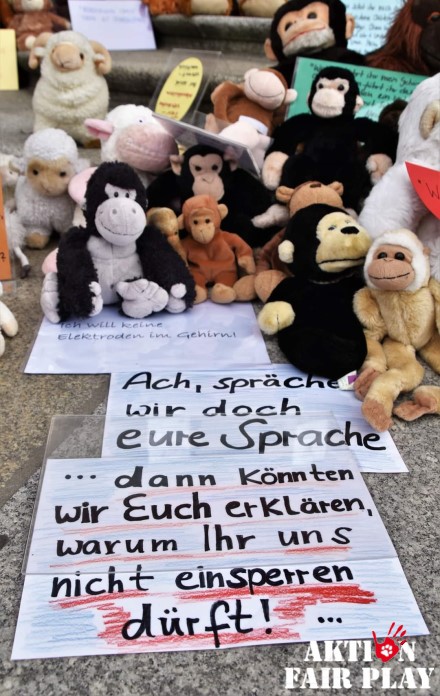 Ich will keine
Elektroden im Gehirn!
Ach, spräche
wir doch
eure Sprache
... dann könnten
wir Euch erklären,
warum Ihr uns
nicht einsperren
dürft! ...
AKTION
FAIR PLAY